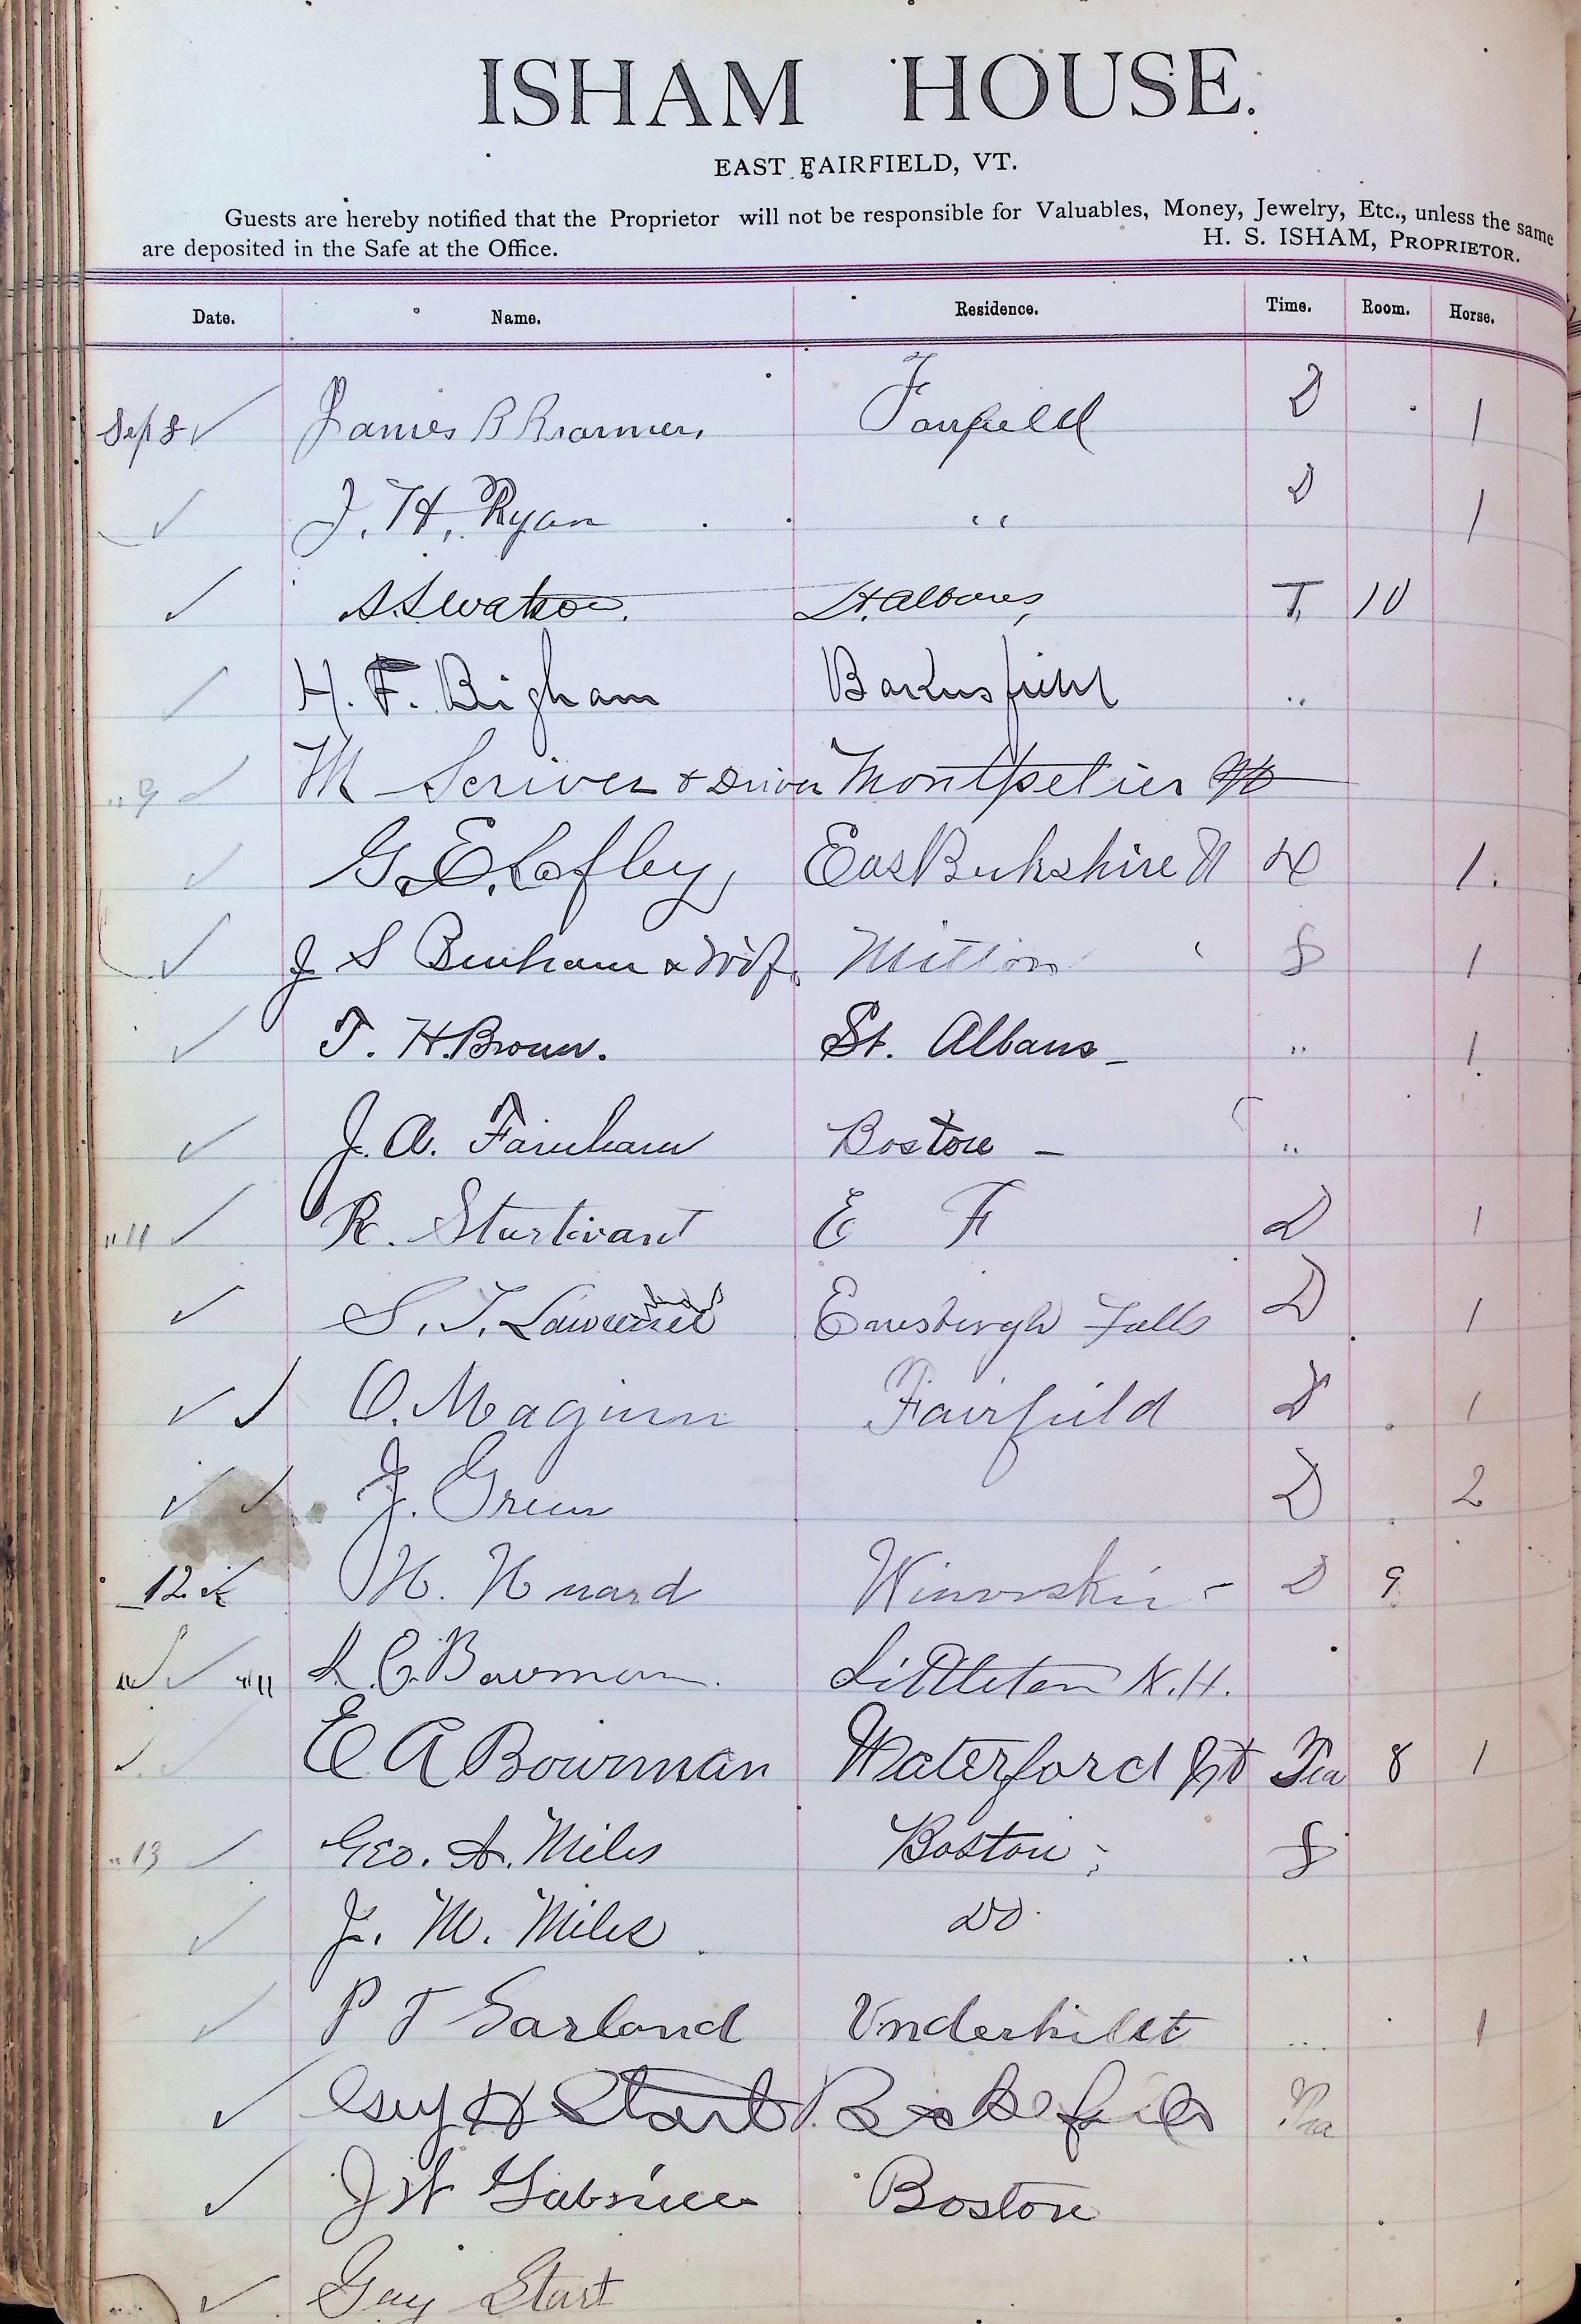 ISHAM HOUSE.
EAST FAIRFIELD, VT.
Guests are hereby notified that the Proprietor will not be responsible for Valuables, Money, Jewelry, Etc., unless the same
are deposited in the Safe at the Office. H. S. ISHAM, PROPRIETOR.
Date. Name. Residence. Time. Room. Horse.
Sep 8 ✓ James B Fairfield D 1
✓ J. H. Ryan " D 1
✓ S. S. Watson. St. Albans, T, 10
✓ H. F. Bigham Bakersfield "
" 9 ✓ M Scriver & Driver Montpelier
✓ G. E. Lafley, East Berkshire Vt 1.
✓ J S Benham & Wife Milton S 1
✓ T. H. Brown. St. Albans - " 1
✓ J. A. Farnham Boston - "
" 11 ✓ R. Sturtivant E F D 1
✓ S. T. Lawrence Enosburgh Falls D 1
✓ ✓ O. Maginn Fairfield D 1
✓ ✓ J. Green D 2
12 ✓ H. Huard Winooski - D 9
" ✓ " L. C. Bowman. Littleton N. H.
✓ E A Bowman Waterford Vt Tea 8 1
" 13 ✓ Geo. A. Miles Boston S
✓ J. M. Miles Do "
✓ P T Garland Underhill Vt " 1
✓ Guy H Start Bakersfield Tea
✓ J W Boston
✓ Guy Start